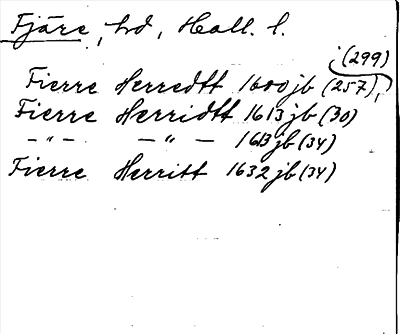 Fjäre, hd, Hall. l.
(299)
Fierre Herredtt 1600 jb (257),
Fierre Herridtt 1613 jb (30)
– " – – " – 1613 jb (34)
Fierre Herritt 1632 jb (34)